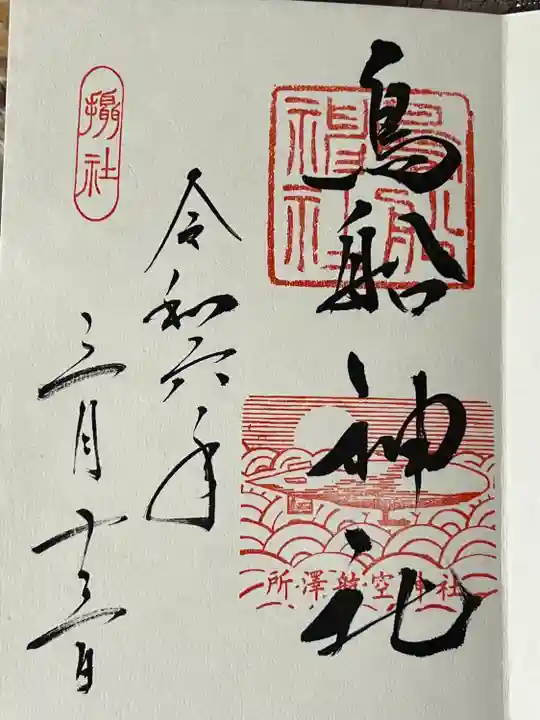 鳥船神社
鳥船
神社
所澤航空神社
令和六年
三月十三日
攝社